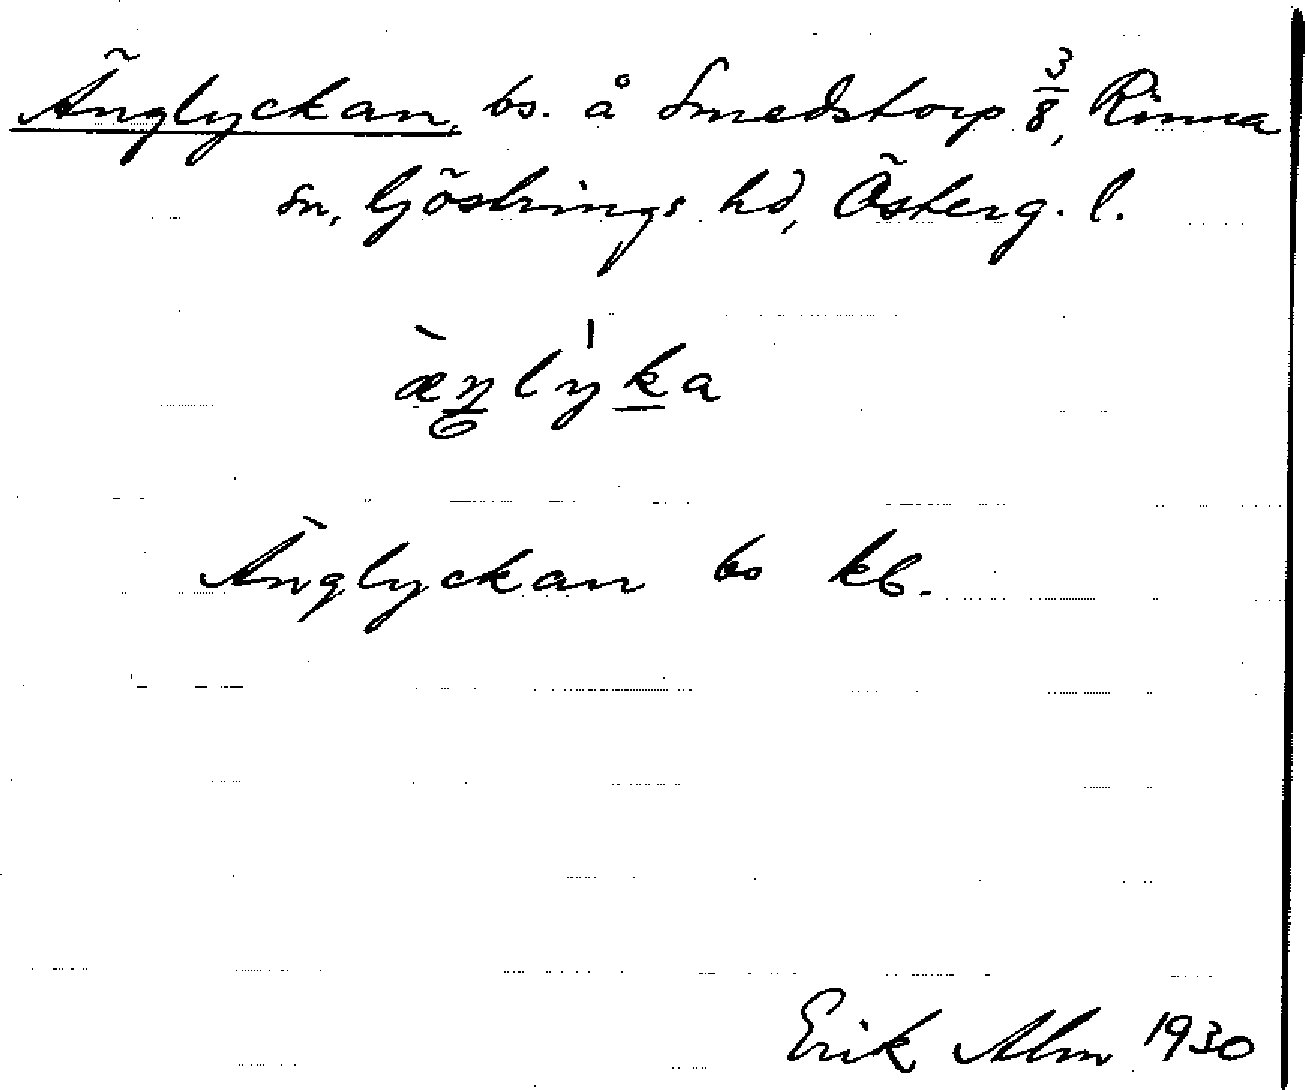 Änglyckan, bs. å Smedstorp 3/8, Rinna
sn, Göstrings hd, Österg. l.
æ̀ŋlyka
Änglyckan bs kb.
Erik Alm 1930